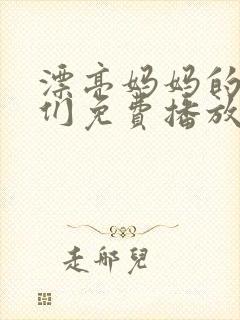 漂亮妈妈的
们免费播放
走邮儿